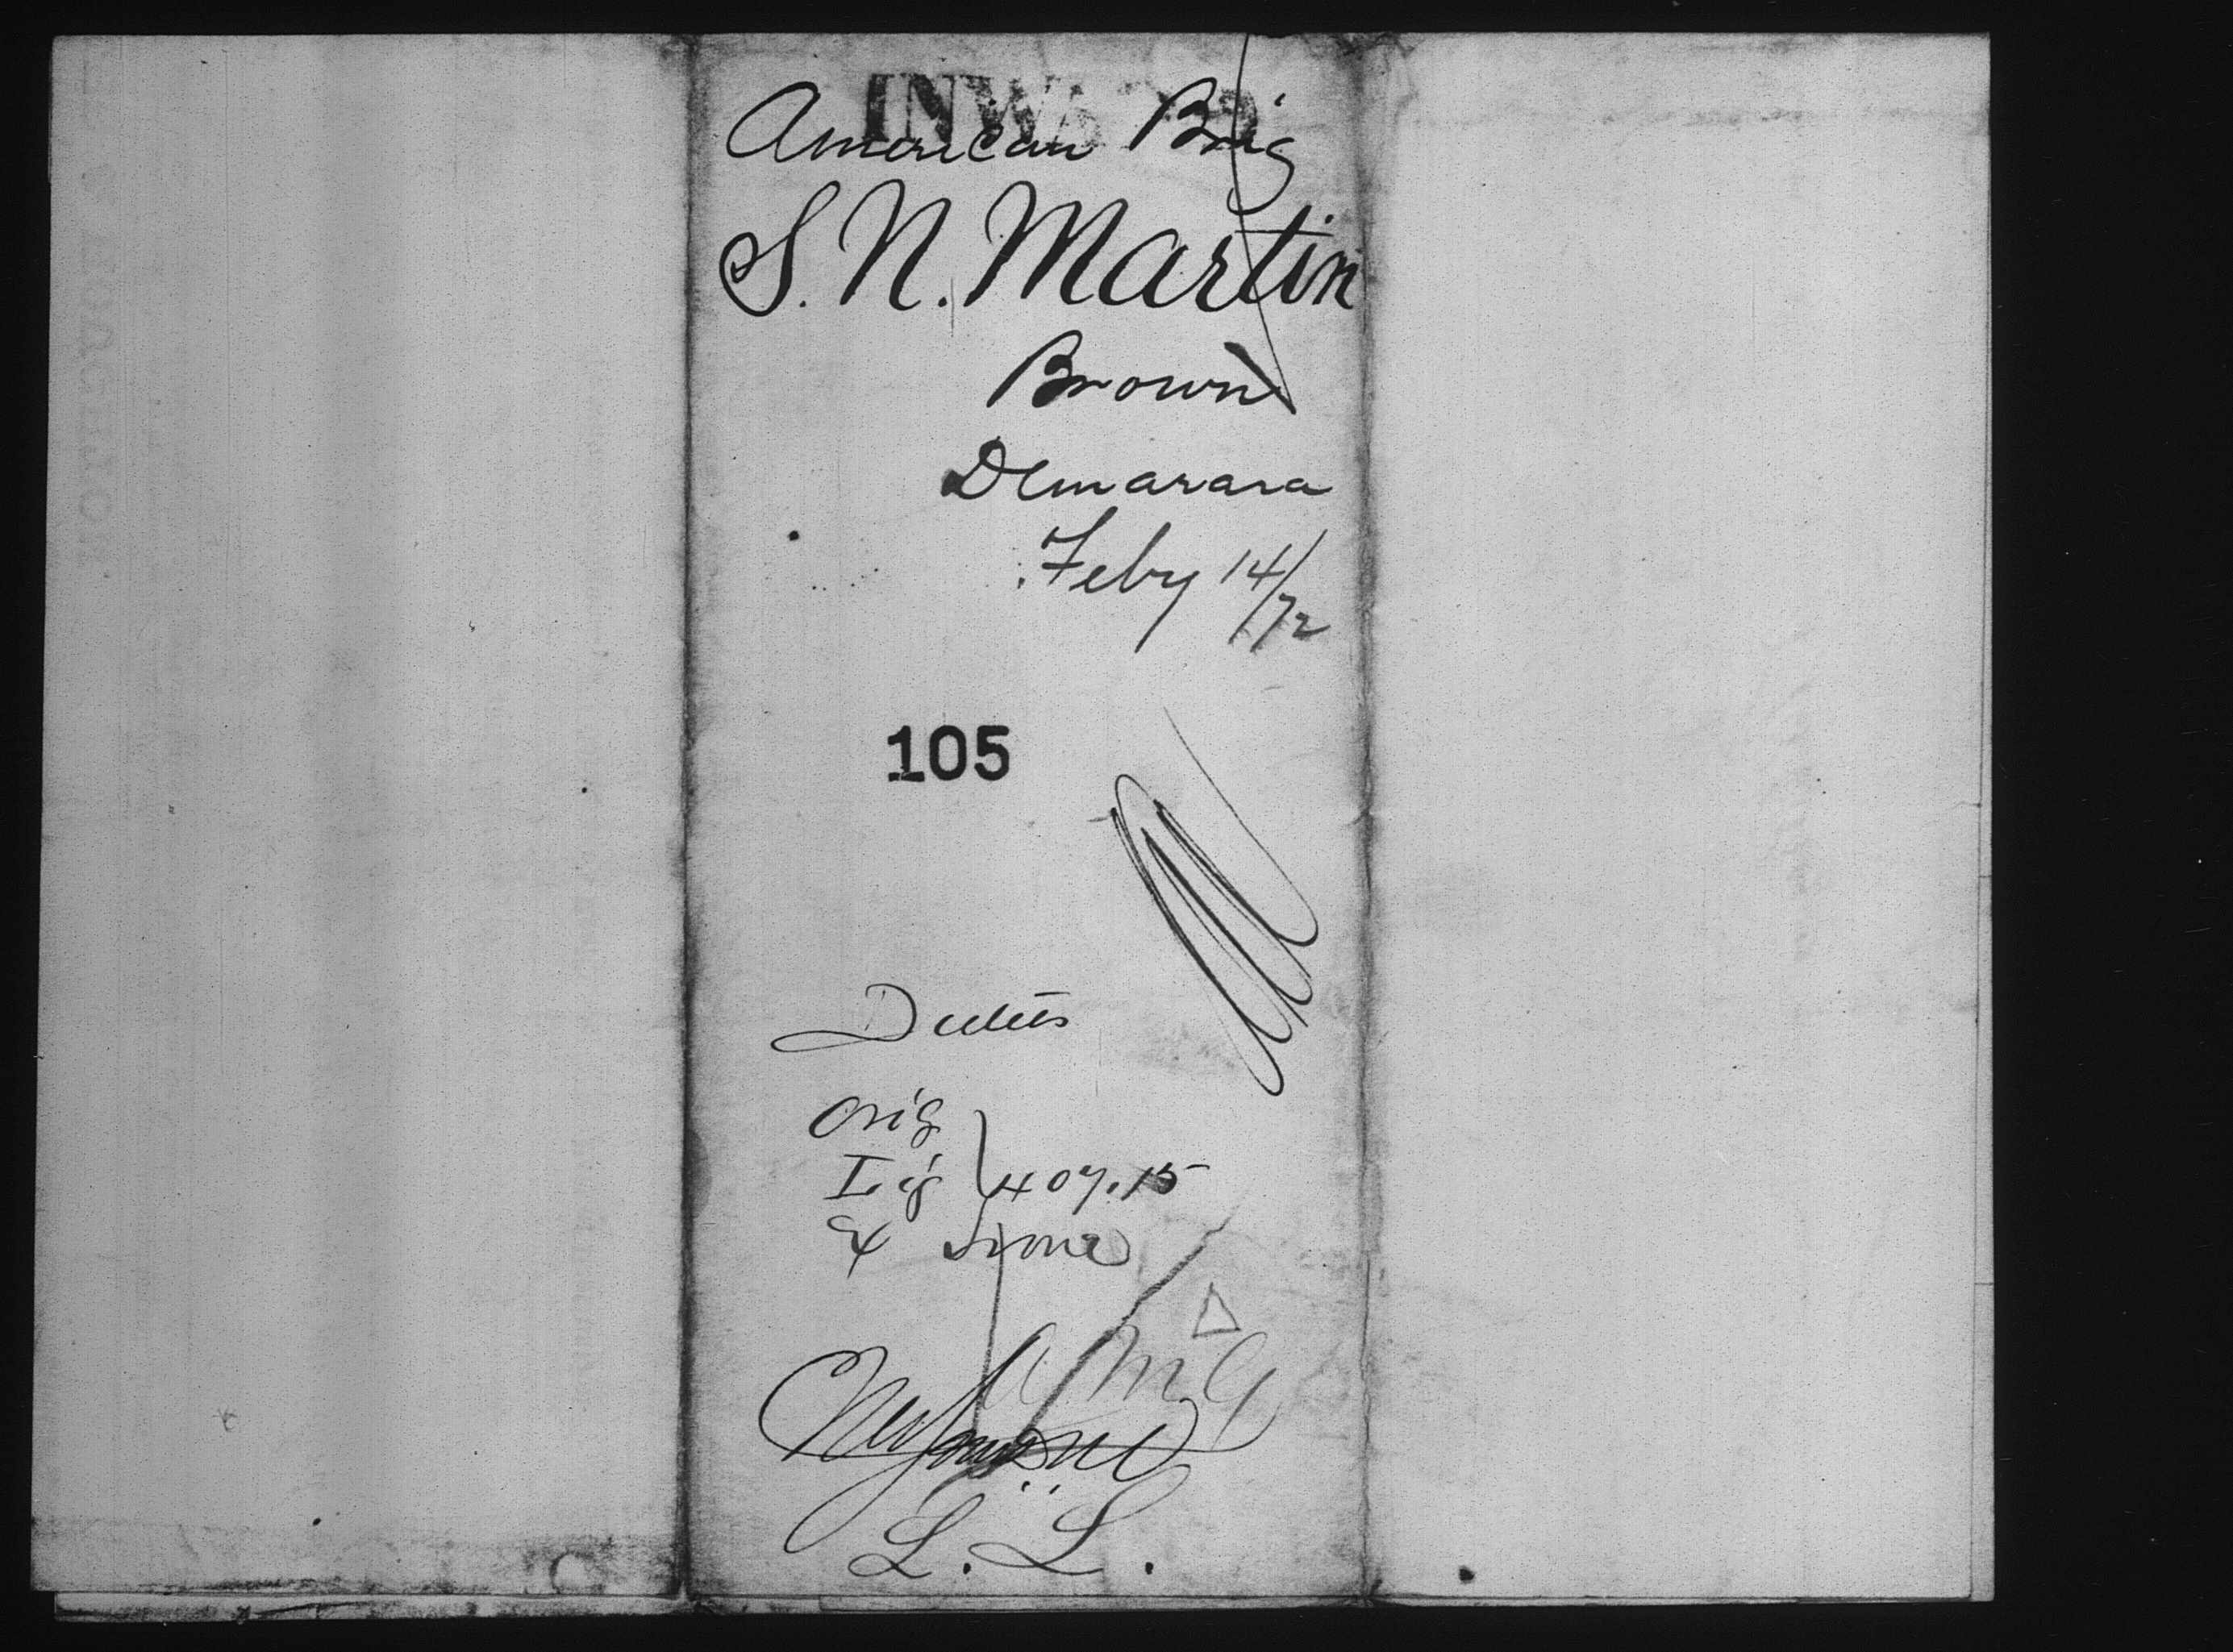 INWARD
American Brig
S. N. Martin
Brown
Demarara
Feby 14/72
105
Duties
Orig
Liq 407.15
Ex
L. L.